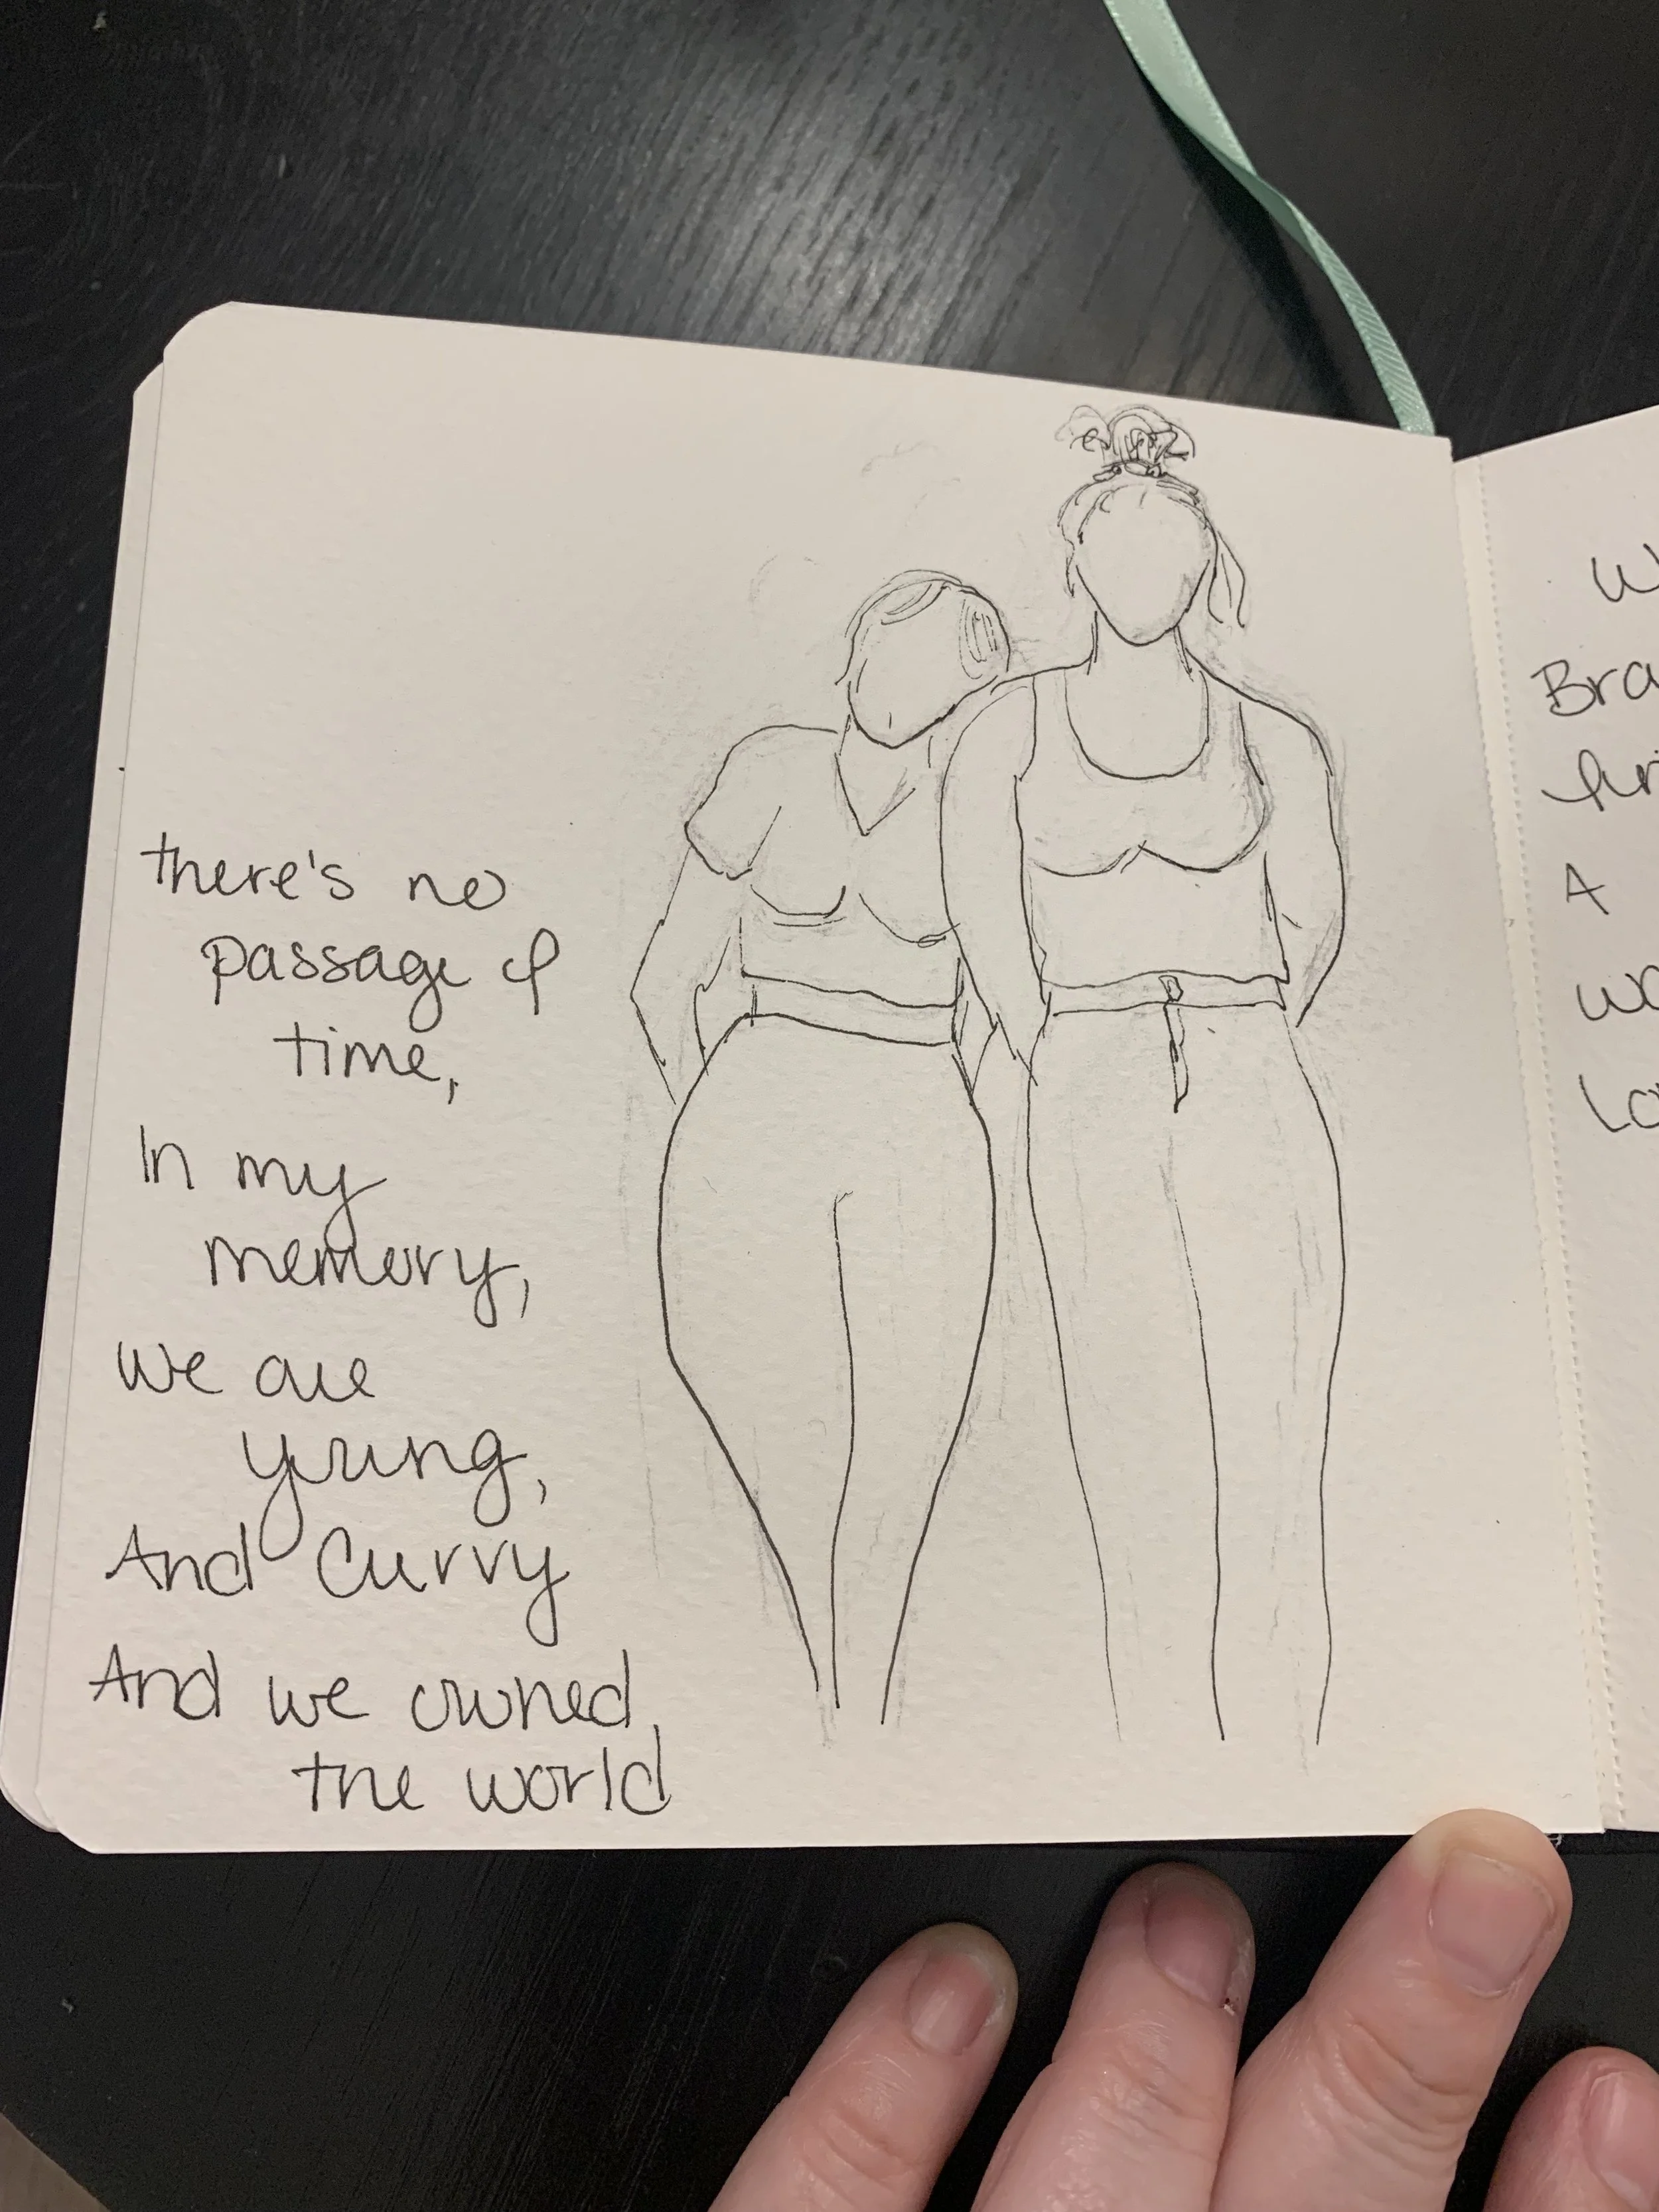 there's no
passage of
time,
In my
memory,
we are
young,
And Curvy
And we owned
the world
Bra
A